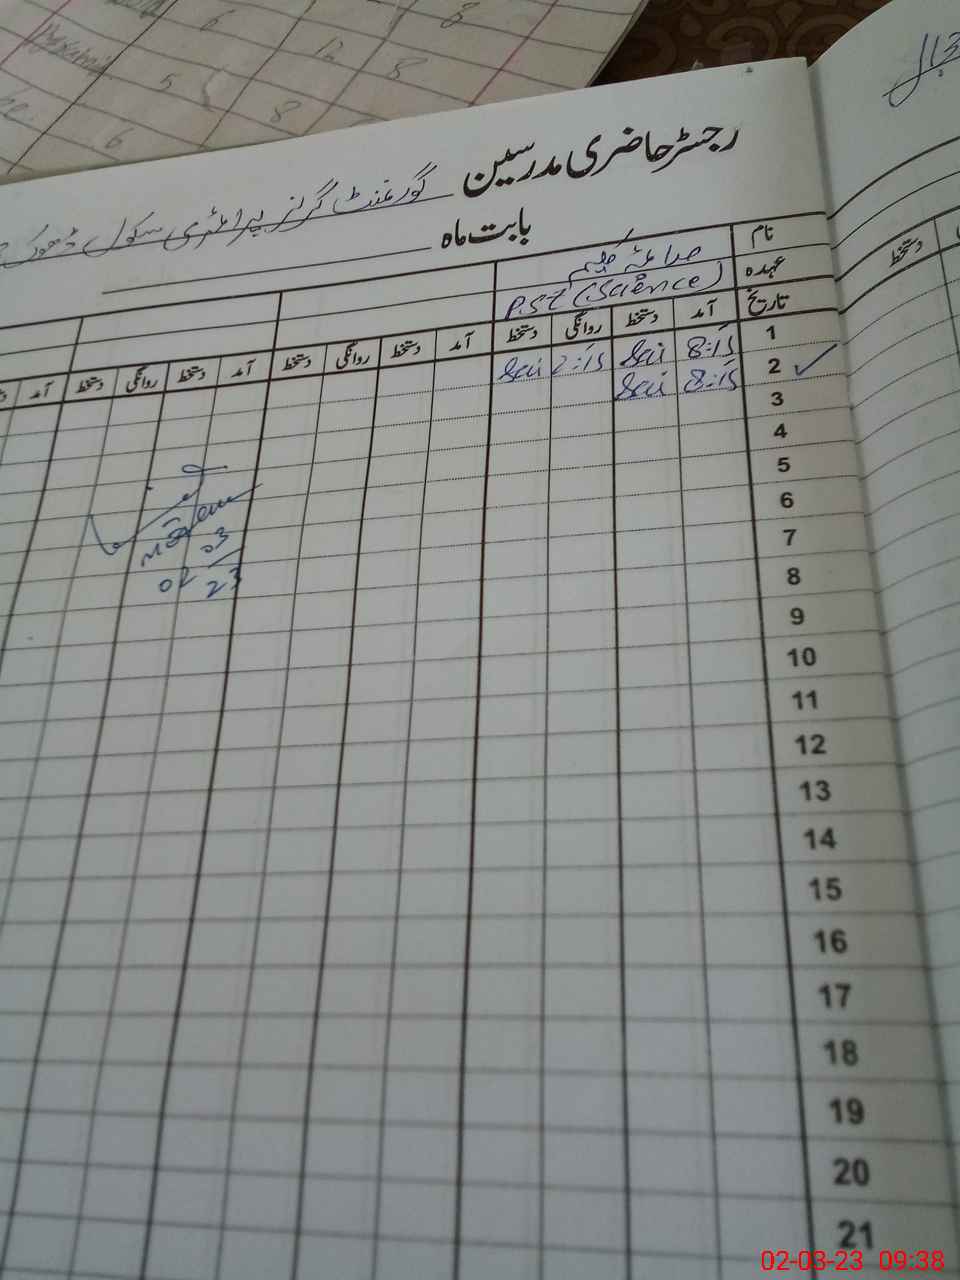 6 8
12 8
5 8
6
رجسٹر حاضری مدرسین گورنمنٹ گرلز پرائمری سکول ڈھوک
بابت ماہ
نام
عہدہ P.S.T (Science)
تاریخ آمد دستخط روانگی دستخط آمد دستخط روانگی دستخط آمد دستخط روانگی دستخط آمد
1 8:15 Sai 2:15 Sai
2 8:15 Sai
3
4
5
6
7
8
9
10
11
12
13
14
15
16
17
18
19
20
21
02 03
23
دستخط
02-03-23 09:38